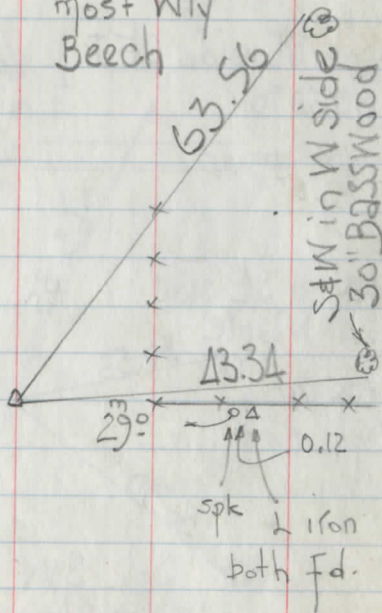 most Wly
Beech
63.56
S&W in W side
30" BassWood
43.34
0.12
spk
L iron
both Fd.